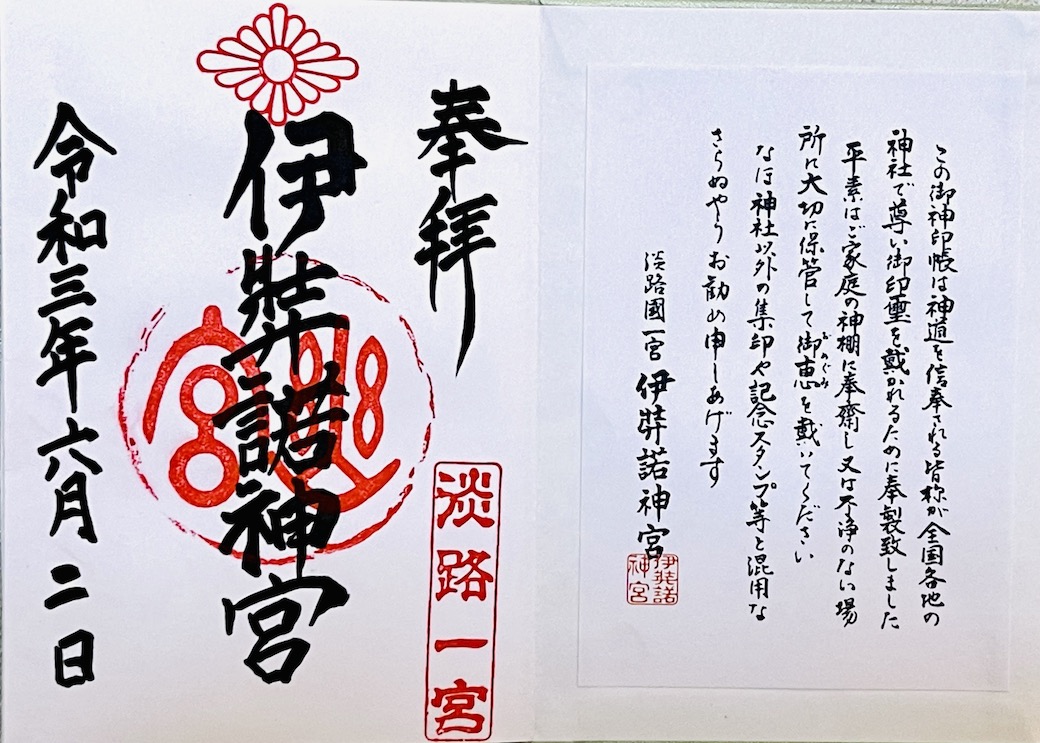 この御神印帳は神道を信奉される皆様が全国各地の
神社で尊い御印璽を戴かれるために奉製致しました
平素はご家庭の神棚に奉齋し又は不浄のない場
所に大切に保管して御恵を戴いてください
みめぐみ
なほ神社以外の集印や記念スタンプ等と混用な
さらぬやうお勧め申しあげます
淡路國一宮 伊弉諾神宮
伊弉諾
神宮
奉拝
淡路一宮
伊弉諾神宮
令和三年六月二日